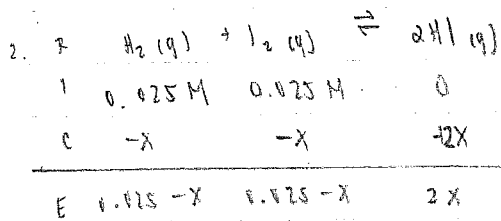 2. R H₂ (g) + I₂ (g) ⇌ 2HI (g)
I 0.025 M 0.025 M 0
C -X -X +2X
E 0.025 - X 0.025 - X 2X